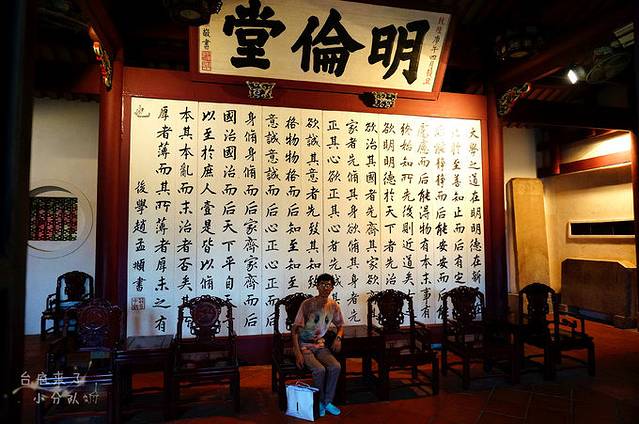 明倫堂
乾隆庚午四月穀旦
敬書
大學之道在明明德在新
止於至善知止而后有定
而后能靜靜而后能安安而
慮慮而后能得物有本末事有
終始知所先後則近道矣
欲明明德於天下者先治
欲治其國者先齊其家欲
家者先脩其身欲脩其身者先
正其心欲正其心者先誠其
欲誠其意者先致其知致知
格物物格而后知至知至
意誠意誠而后心正心正而后
身脩身脩而后家齊家齊而后
國治國治而后天下平自天
以至於庶人壹是皆以脩
本其本亂而末治者否矣其所
厚者薄而其所薄者厚未之有
也
後學趙孟頫書
台庭來了
小分队